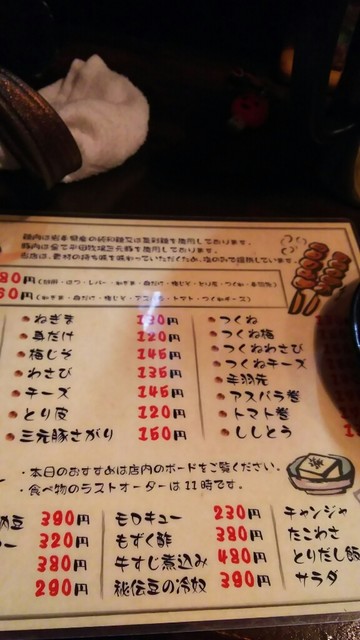 鶏肉は岩手県産の
豚肉は全て平田牧場三元豚を使用しております。
当店は、素材の持ち味を味わっていただくため、塩のみで提供しています。
80円
30円
ねぎま 130円
身だけ 120円
梅じそ 145円
わさび 135円
チーズ 145円
とり皮 120円
三元豚さがり 150円
つくね
つくね梅
つくねわさび
つくねチーズ
手羽先
アスパラ巻
トマト巻
ししとう
・本日のおすすめは店内のボードをご覧ください。
・食べ物のラストオーダーは11時です。
豆 390円
ー 320円
380円
290円
モロキュー 230円
もずく酢 380円
牛すじ煮込み 480円
秘伝豆の冷奴 390円
チャンジャ
たこわさ
とりだし飯
サラダ